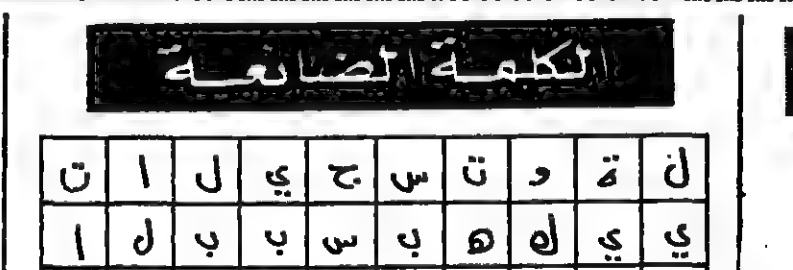 الكلمة الضائعة
ن ة و ت س ج ي ل ا ت
ي ي ك ه ب س ب ب ل ا